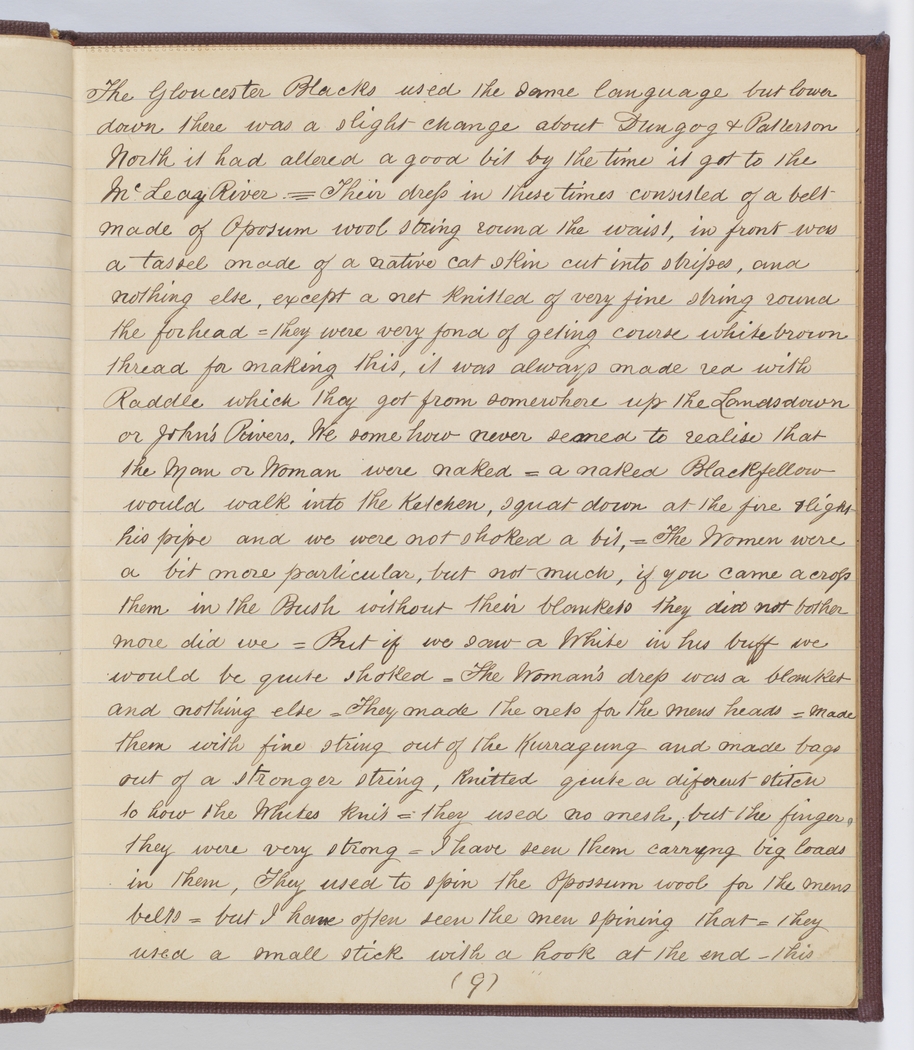 The Gloucester Blacks used the same language but lower
down there was a slight change about Dungog & Patterson
North it had altered a good bit by the time it got to the
Mc Leay River. = Their dress in these times consisted of a belt
made of Oposum wool string round the waist, in front was
a tassel made of a native cat skin cut into stripes, and
nothing else, except a net knitted of very fine string round
the forhead = they were very fond of geting course white brown
thread for making this, it was always made red with
Raddle which they got from somewhere up the Landsdown
or John's Rivers. We some how never seamed to realise that
the Man or Woman were naked = a naked Blackfellow
would walk into the Ketchen, squat down at the fire & light
his pipe and we were not shoked a bit, = The Women were
a bit more particular, but not much, if you came across
them in the Bush without their blankets they did not bother
more did we = But if we saw a White in his buff we
would be quite shoked = The Woman's dress was a blanket
and nothing else = They made the nets for the mens heads = made
them with fine string out of the Kurragung and made bags
out of a stronger string, knitted quite a diferent stitch
to how the Whites knit = they used no mesh, but the finger,
they were very strong = I have seen them carryng big loads
in them, They used to spin the Opossum wool for the mens
belts = but I have often seen the men spining that = they
used a small stick with a hook at the end - this
(9)